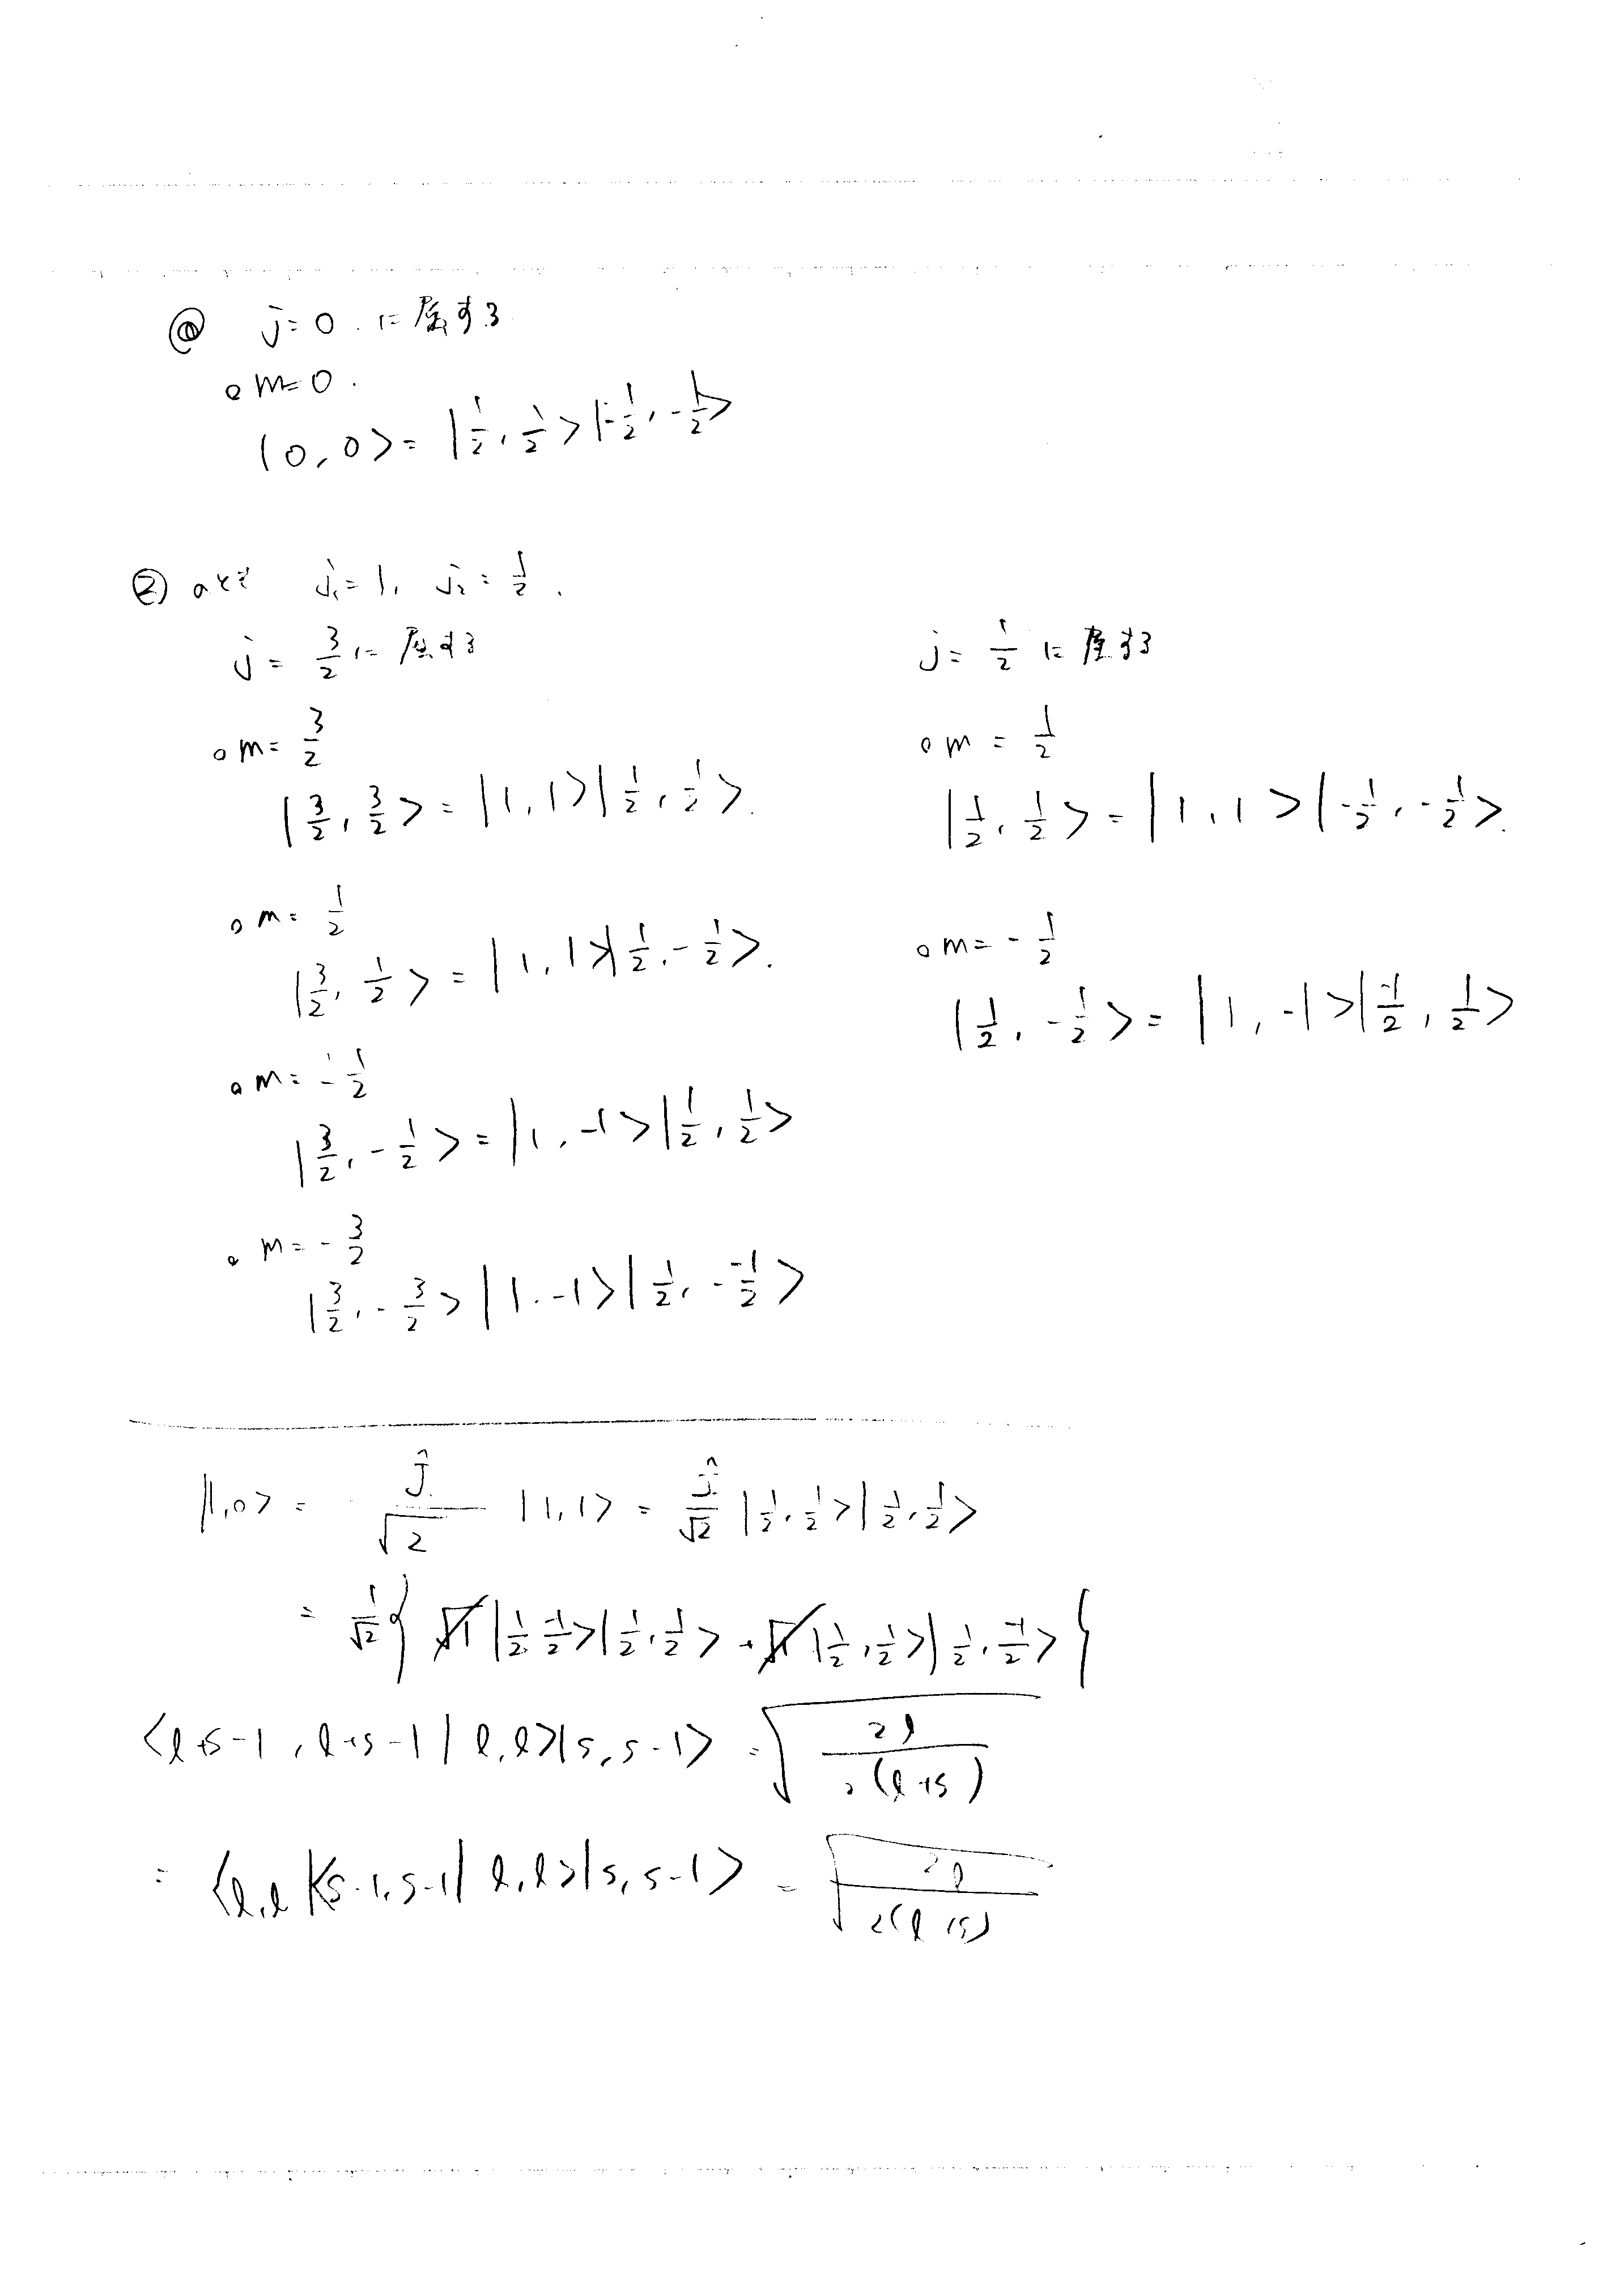 ◎ j=0. に属する
○ m=0.
|0,0> = |1/2, 1/2>|-1/2, -1/2>
② のとき j₁=1, j₂=1/2.
j = 3/2 に属する
○ m= 3/2
|3/2, 3/2> = |1,1>|1/2, 1/2>.
○ m= 1/2
|3/2, 1/2> = |1,1>|1/2, -1/2>.
○ m= -1/2
|3/2, -1/2> = |1,-1>|1/2, 1/2>
○ m= -3/2
|3/2, -3/2> |1,-1>|1/2, --1/2>
j= 1/2 に属する
○ m = 1/2
|1/2, 1/2> = |1,1>|-1/2, -1/2>.
○ m= -1/2
|1/2, -1/2> = |1,-1>|-1/2, 1/2>
|1,0> = Ĵ/√2 |1,1> = Ĵ/√2 |1/2, 1/2>|1/2, 1/2>
= 1/√2 { √1 |1/2 -1/2>|1/2, 1/2> + √1 |1/2, 1/2>|1/2, -1/2> }
<l+s-1, l+s-1|l,l>|s,s-1> = √(2l/2(l+s))
= <l,l|<s-1,s-1|l,l>|s,s-1> = √(2l/2(l+s))